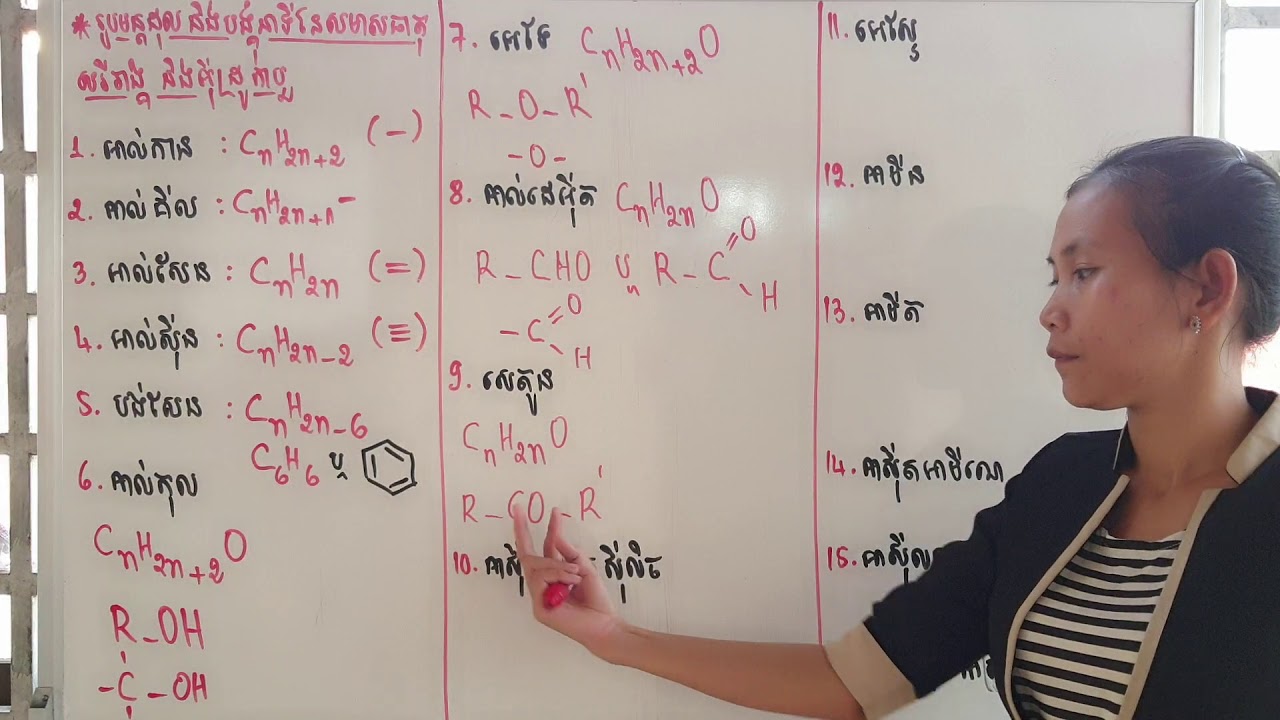 * រូបមន្តដុល និងបង្គុំនាទីនៃសមាសធាតុ
សរីរាង្គ និងអ៊ីដ្រូកាបួ
1. អាល់កាន : CnH2n+2 (–)
2. អាល់គីល : CnH2n+1 –
3. អាល់សែន : CnH2n (=)
4. អាល់ស៊ីន : CnH2n–2 (≡)
5. បង់សែន : CnH2n–6
C6H6 ឬ
6. អាល់កុល
CnH2n+2O
R–OH
–C–OH
7. អេទែ CnH2n+2O
R–O–R'
–O–
8. អាល់ដេអ៊ីត CnH2nO
R–CHO ឬ R–C=O
H
–C=O
H
9. សេតូន
CnH2nO
R–CO–R'
10. ស៊ីលិច
11. អេស្ទែ
12. អាមីន
13. អាមីត
14. អាស៊ីតអាមីណេ
15. អាស៊ីល